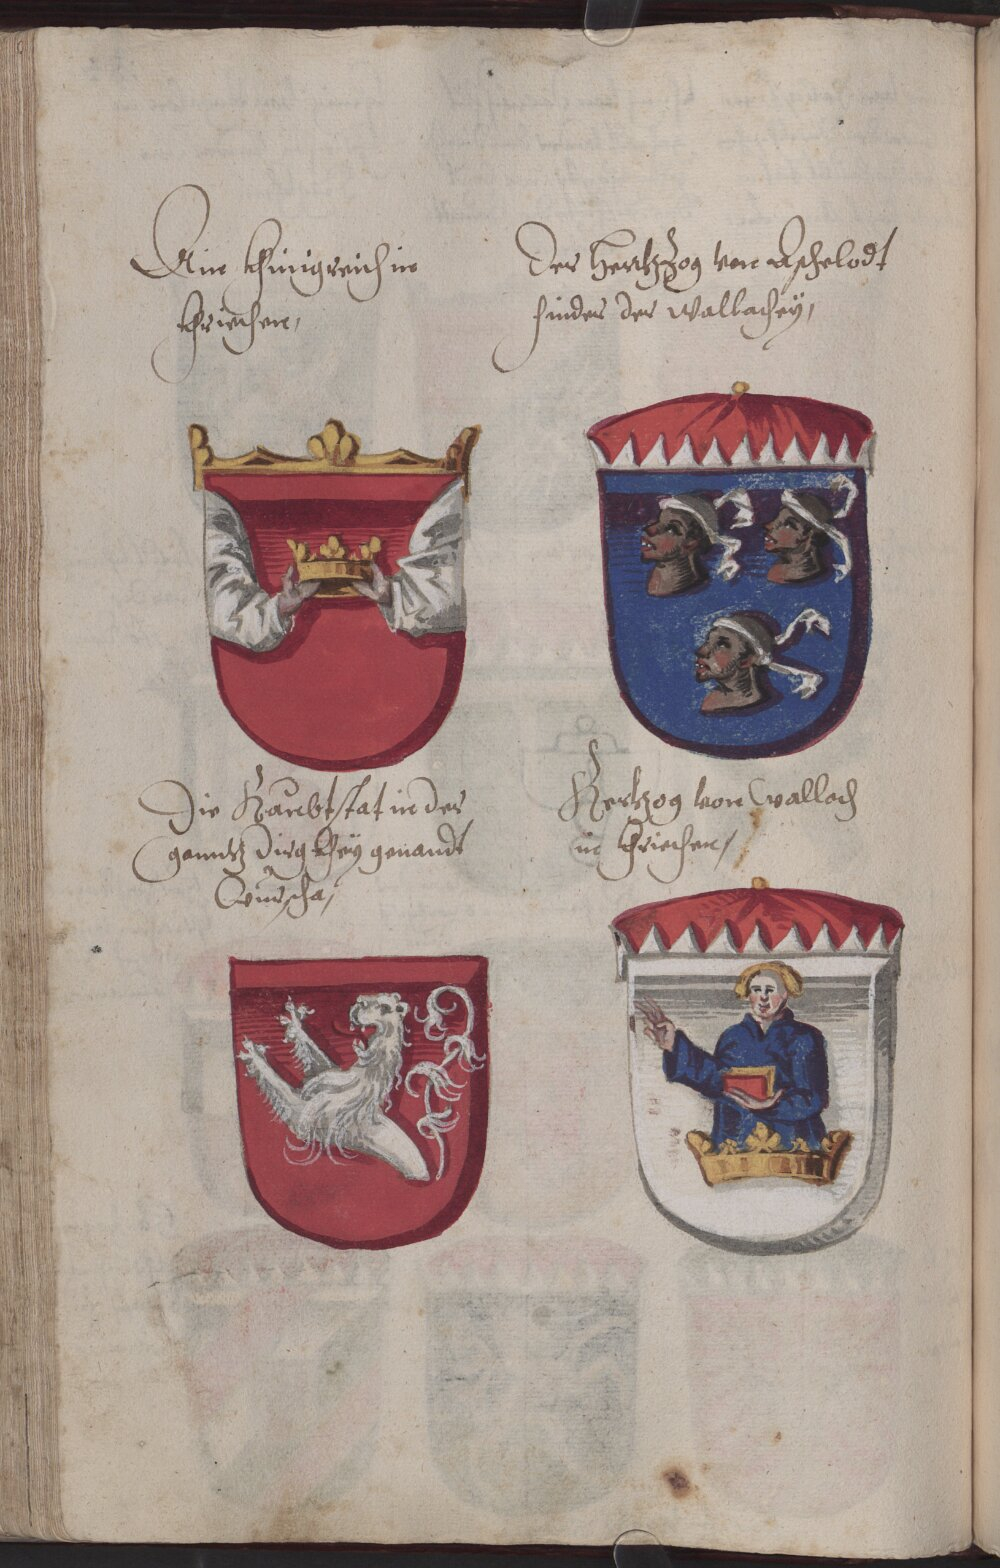 Ain Khüngreich in
Khriechen,
Der Hertzog von Aschelodt
hinder der Wallachey,
Die Haubtstat in der
ganntz Dirgkhey genandt
Wurscha,
Hertzog von Wallach
in Khriechen,